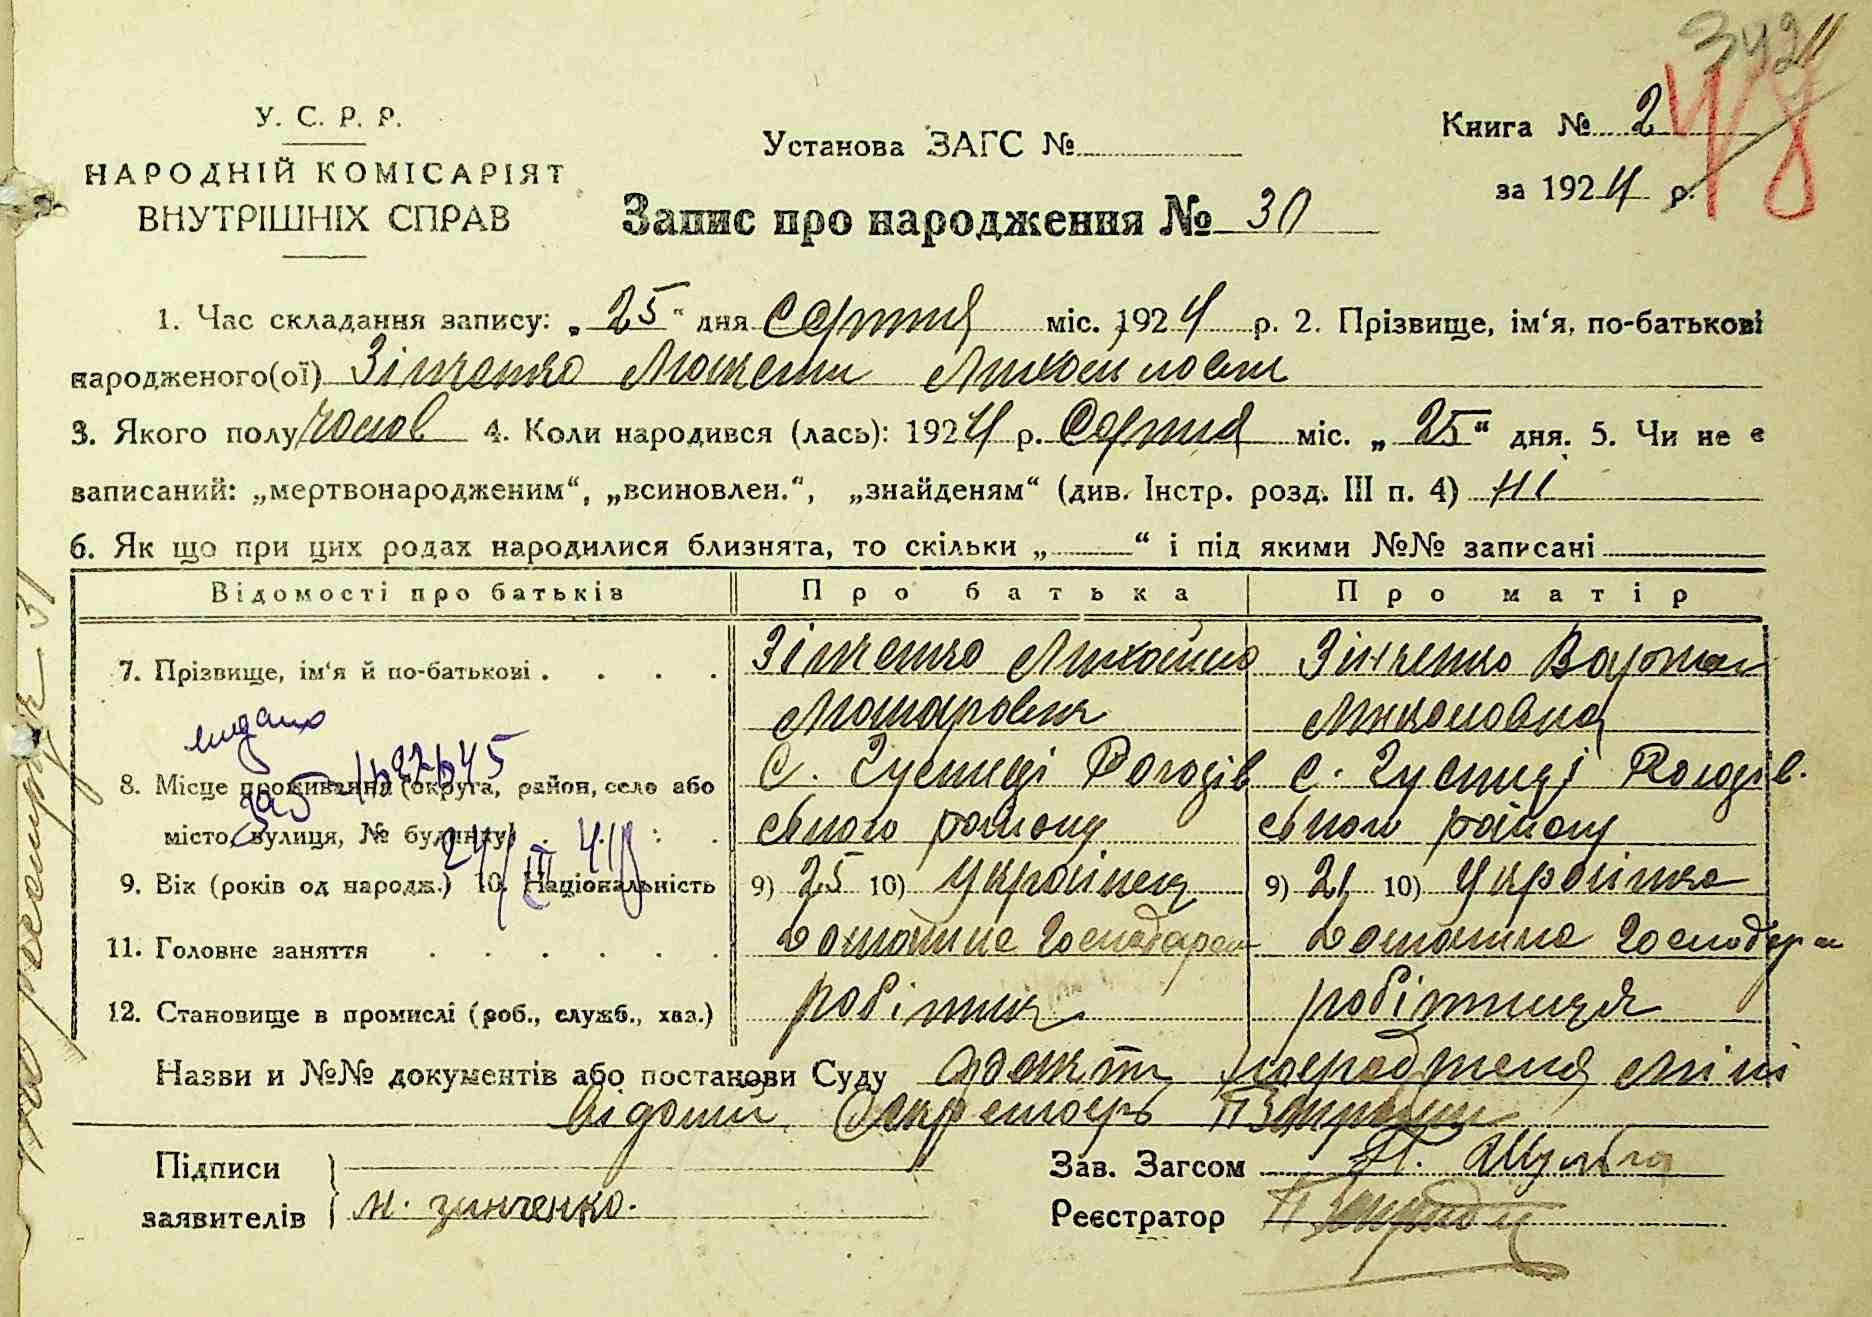 342
48
У. С. Р. Р.
НАРОДНІЙ КОМІСАРІЯТ
ВНУТРІШНІХ СПРАВ
Установа ЗАГС №
Книга № 2
за 1924 р.
Запис про народження № 30
1. Час складання запису: „25“ дня Серпня міс. 1924 р. 2. Прізвище, ім'я, по-батькові
народженого(ої) Зінченко
3. Якого полу чолов 4. Коли народився (лась): 1924 р. Серпня міс. „25“ дня. 5. Чи не є
записаний: „мертвонародженим“, „всиновлен.“, „знайденям“ (див. Інстр. розд. III п. 4) ні
6. Як що при цих родах народилися близнята, то скільки „ “ і під якими №№ записані
Відомості про батьків Про батька Про матір
7. Прізвище, ім'я й по-батькові . . . . Зінченко Михайло Зінченко
Макарович Миколовна
8. Місце проживання (округа, район, село або С. Густиці С. Густиці
місто, вулиця, № будинку) . . . . району району
9. Вік (років од народж.) 10. Національність 9) 25 10) Українец 9) 21 10) Українка
11. Головне заняття . . . . . . Домашне Господарство Домашне
12. Становище в промислі (роб., служб., хаз.) робітник робітниця
Назви и №№ документів або постанови Суду
відомий Секретарь
Підписи
заявителів М. зинченко.
Зав. Загсом П. Шульга
Реєстратор